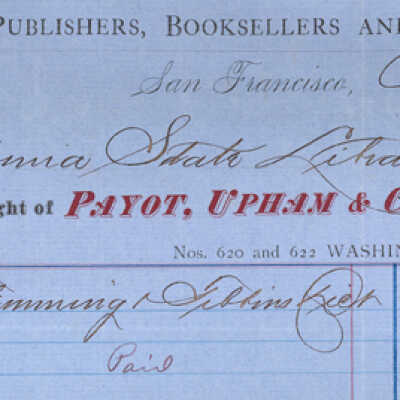 PUBLISHERS, BOOKSELLERS AND
San Francisco,
nia State Libra
ght of PAYOT, UPHAM & C
Nos. 620 and 622 WASHIN
Tibbins
Paid